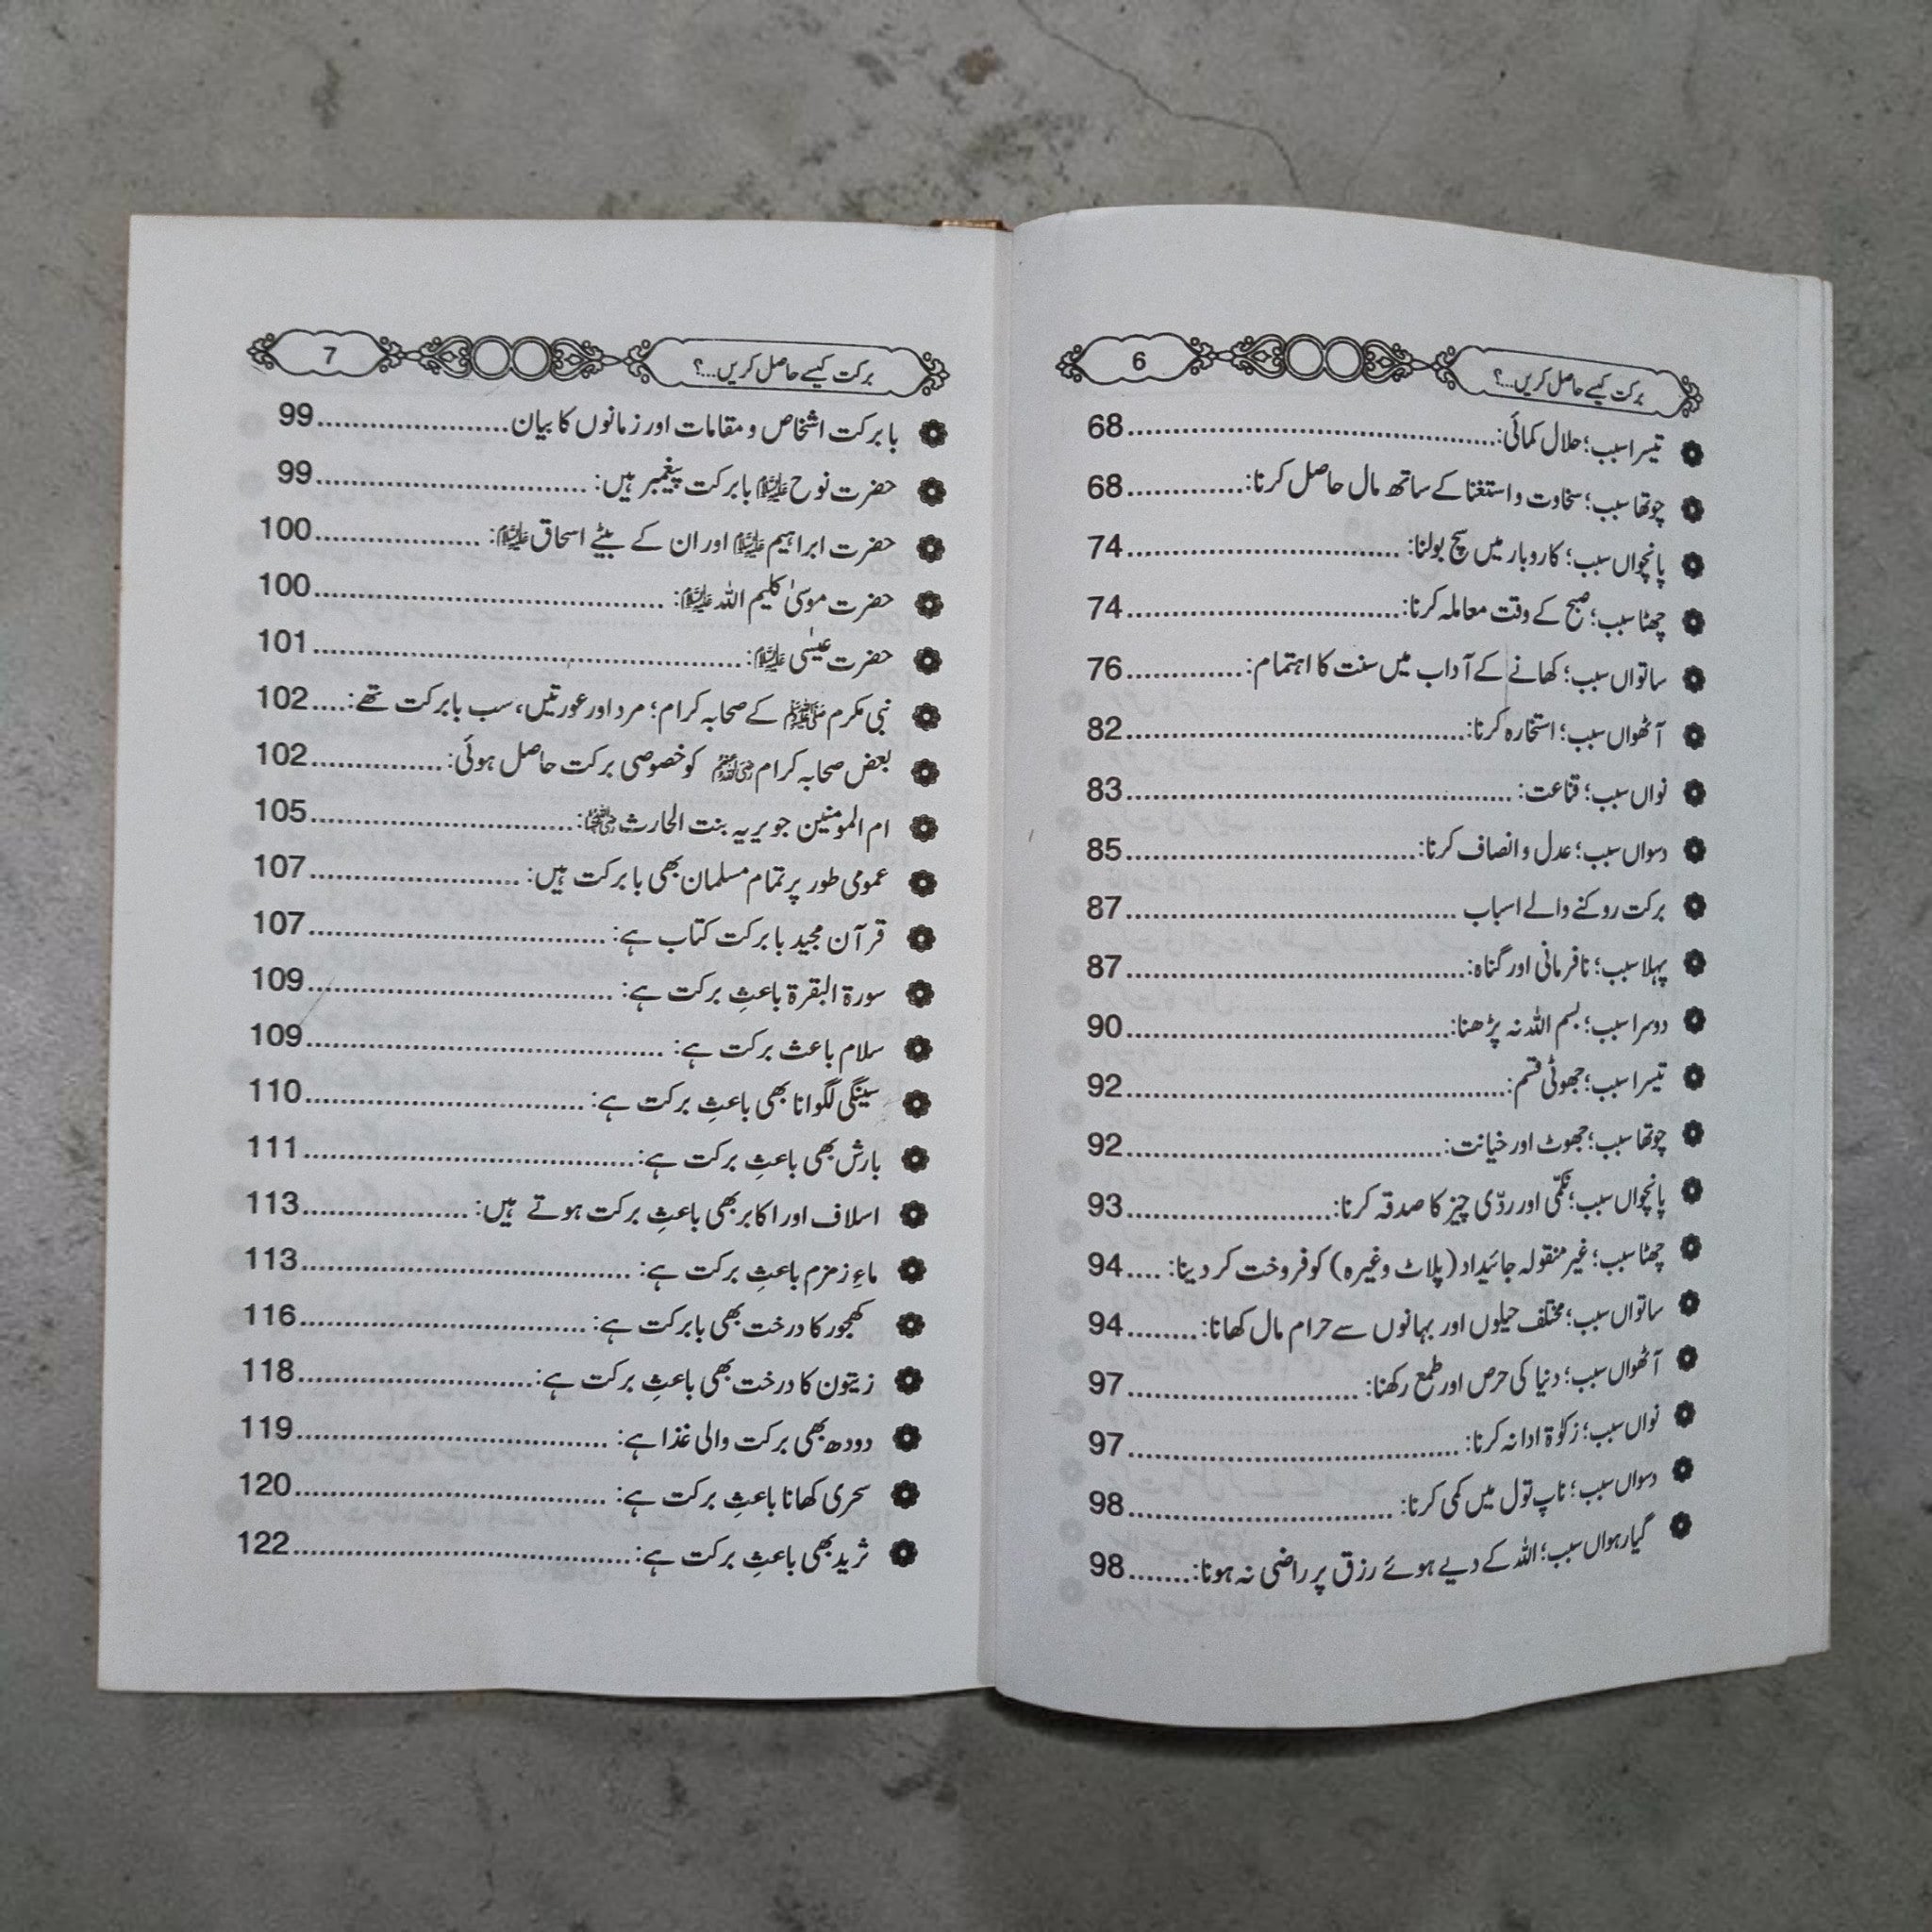 برکت کیسے حاصل کریں...؟ 6
تیسرا سبب؛ حلال کمائی:......................................68
چوتھا سبب؛ سخاوت و استغنا کے ساتھ مال حاصل کرنا:.............68
پانچواں سبب؛ کاروبار میں سچ بولنا:............................74
چھٹا سبب؛ صبح کے وقت معاملہ کرنا:............................74
ساتواں سبب؛ کھانے کے آداب میں سنت کا اہتمام:.............76
آٹھواں سبب؛ استخارہ کرنا:...................................82
نواں سبب؛ قناعت:........................................83
دسواں سبب؛ عدل و انصاف کرنا:..............................85
برکت روکنے والے اسباب..................................87
پہلا سبب؛ نافرمانی اور گناہ:...................................87
دوسرا سبب؛ بسم اللہ نہ پڑھنا:.................................90
تیسرا سبب؛ جھوٹی قسم:.......................................92
چوتھا سبب؛ جھوٹ اور خیانت:................................92
پانچواں سبب؛ نکمّی اور ردّی چیز کا صدقہ کرنا:.....................93
چھٹا سبب؛ غیر منقولہ جائیداد (پلاٹ وغیرہ) کو فروخت کر دینا:....94
ساتواں سبب؛ مختلف حیلوں اور بہانوں سے حرام مال کھانا:........94
آٹھواں سبب؛ دنیا کی حرص اور طمع رکھنا:........................97
نواں سبب؛ زکوٰۃ ادا نہ کرنا:..................................97
دسواں سبب؛ ناپ تول میں کمی کرنا:...........................98
گیارہواں سبب؛ اللہ کے دیے ہوئے رزق پر راضی نہ ہونا:.......98
برکت کیسے حاصل کریں...؟ 7
بابرکت اشخاص و مقامات اور زمانوں کا بیان....................99
حضرت نوح علیہ السلام بابرکت پیغمبر ہیں:............................99
حضرت ابراہیم علیہ السلام اور ان کے بیٹے اسحاق علیہ السلام:.................100
حضرت موسیٰ کلیم اللہ علیہ السلام:....................................100
حضرت عیسٰی علیہ السلام:............................................101
نبی مکرم ﷺ کے صحابہ کرام؛ مرد اور عورتیں، سب بابرکت تھے:....102
بعض صحابہ کرام رضی اللہ عنہم کو خصوصی برکت حاصل ہوئی:..............102
ام المومنین جویریہ بنت الحارث رضی اللہ عنہا:...........................105
عمومی طور پر تمام مسلمان بھی بابرکت ہیں:......................107
قرآن مجید بابرکت کتاب ہے:...............................107
سورۃ البقرۃ باعثِ برکت ہے:................................109
سلام باعث برکت ہے:.....................................109
سینگی لگوانا بھی باعثِ برکت ہے:.............................110
بارش بھی باعثِ برکت ہے:..................................111
اسلاف اور اکابر بھی باعثِ برکت ہوتے ہیں:.................113
ماءِ زمزم باعثِ برکت ہے:..................................113
کھجور کا درخت بھی بابرکت ہے:..............................116
زیتون کا درخت بھی باعثِ برکت ہے:........................118
دودھ بھی برکت والی غذا ہے:................................119
سحری کھانا باعثِ برکت ہے:................................120
ثرید بھی باعثِ برکت ہے:...................................122